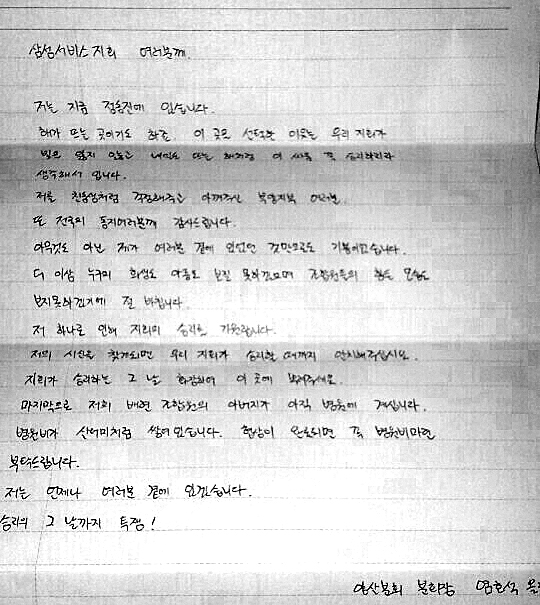 삼성서비스지회 여러분께.
저는 지금 정동진에 있습니다.
해가 뜨는 곳이기도 하죠. 이 곳을 선택한 이유는 우리 지회가
빛을 잃지 않고 내일도 뜨는 해처럼 이 싸움 꼭 승리하리라
생각해서 입니다.
저를 친동생처럼 걱정해주고 아껴주신 부양지부 여러분.
또 전국의 동지여러분께 감사드립니다.
아무것도 아닌 제가 여러분 곁에 있었던 것만으로도 기뻤습니다.
더 이상 누구의 희생도 아픔도 보질 못하겠으며 조합원들의 힘든 모습도
보지못하겠기에 절 바칩니다.
저 하나로 인해 지회의 승리를 기원합니다.
저의 시신을 찾게되면 우리 지회가 승리할 때까지 안치해주십시오.
지회가 승리하는 그 날 화장하여 이 곳에 뿌려주세요.
마지막으로 저희 배현 조합원의 아버지가 아직 병원에 계십니다.
병원비가 산더미처럼 쌓여있습니다. 협상이 완료되면 꼭 병원비마련
부탁드립니다.
저는 언제나 여러분 곁에 있겠습니다.
승리의 그 날까지 투쟁!
양산분회 분회장 염호석 올